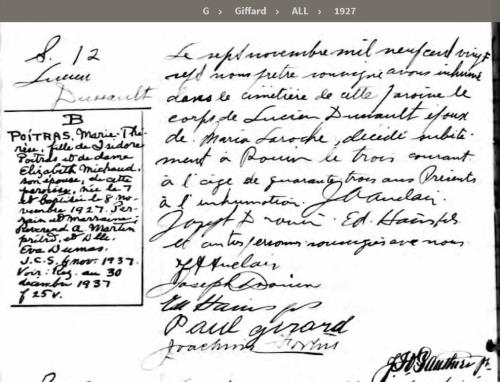 G › Giffard › ALL › 1927
S. 12
Lucien
Dussault
B
POITRAS, Marie-Thé-
rèse, fille de Isidore
Poitras et de dame
Elizabeth Michaud,
son épouse, de cette
paroisse, née le 7
et baptisée le 8 no-
vembre 1927. Par-
rain et marraine:
Révérend A. Martin
prêtre, et Dlle.
Eva Dumas.
J.C.S. 6 nov. 1937.
Voir: Reg. au 30
décembre 1937
f 25v.
Le sept novembre mil neuf cent vingt
sept nous prêtre soussigné avons inhumé
dans le cimetière de cette paroisse le
corps de Lucien Dussault époux
de Maria Laroche, décédé subite-
ment à Rouyn le trois courant
à l'âge de quarante trois ans Présents
à l'inhumation. J. Auclair.
Joseph Drouin. Ed.
et autres personnes soussignés avec nous.
Auclair
Joseph Drouin
Ed
Paul Girard
Joachim